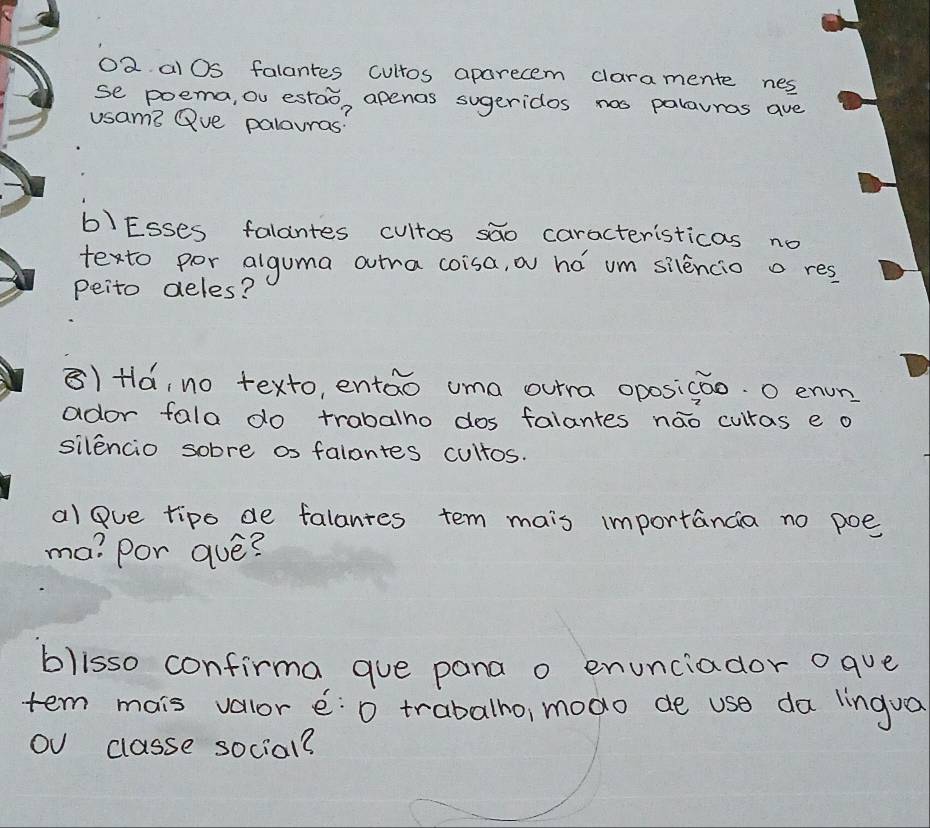 02. a) Os falantes cultos aparecem claramente nes
se poema, ou estão, apenas sugeridos nas palavras que
usam? Que palavras?
b) Esses falantes cultos são características no
texto por alguma outra coisa, ou há um silêncio a res
peito deles?
3) Há, no texto, então uma outra oposição. O enun
ador fala do trabalho dos falantes não cultas e o
silêncio sobre os falantes cultos.
a) Que tipo de falantes tem mais importância no poe
ma? Por quê?
b) Isso confirma que para o enunciador o que
tem mais valor é: o trabalho, modo de uso da língua
ou classe social?